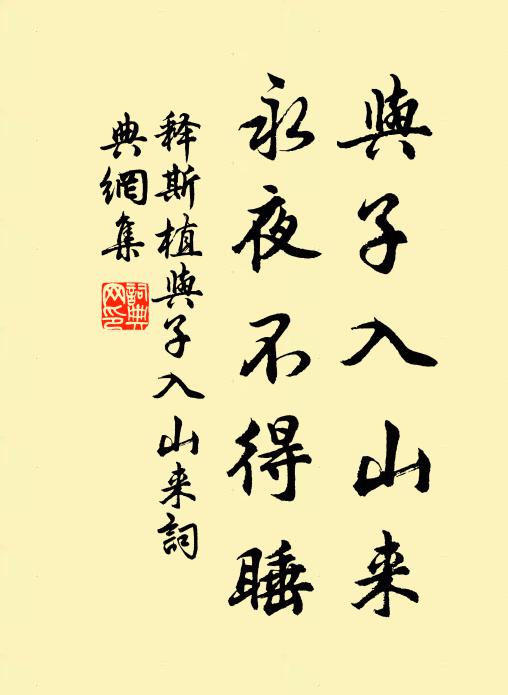 與子入山来
永夜不得睡
释斯植與子入山来詞
典網集
詞典网印